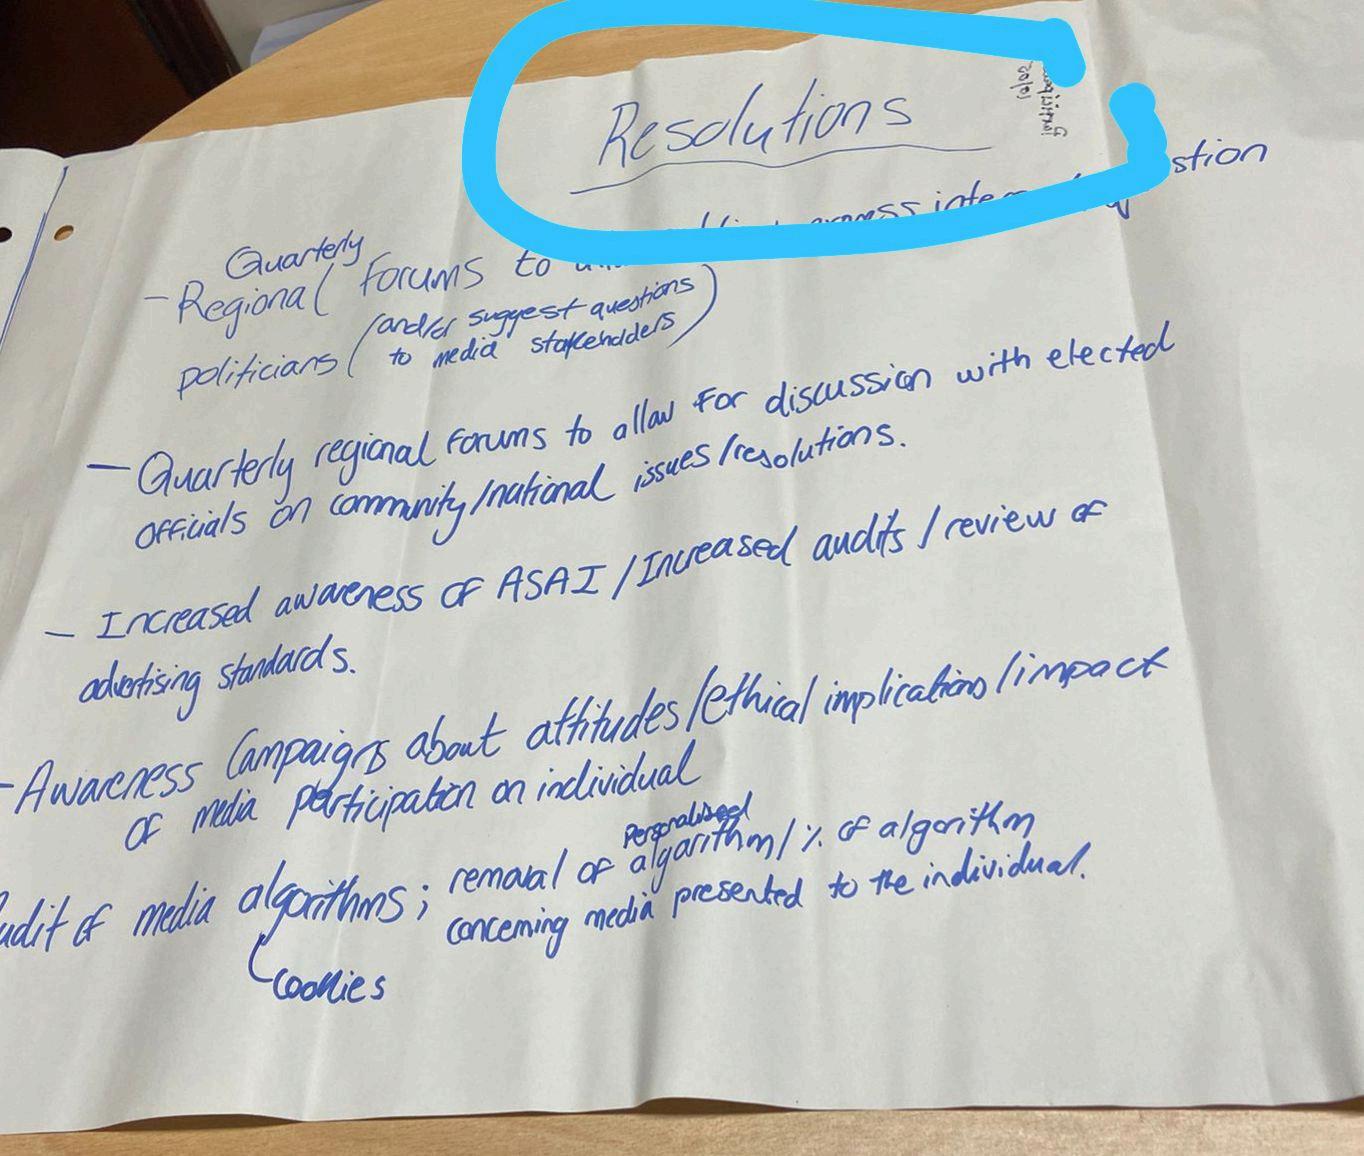 Resolutions
- Quarterly Regional forums to
stion
politicians (and/or suggest questions
to media stakeholders)
- Quarterly regional forums to allow for discussion with elected
officials on community/national issues/resolutions.
- Increased awareness of ASAI / Increased audits / review of
advertising standards.
- Awareness Campaigns about attitudes/ethical implications/impact
of media participation on individual
udit of media algorithms; removal of Personalised algorithm / % of algorithm
concerning media presented to the individual.
cookies